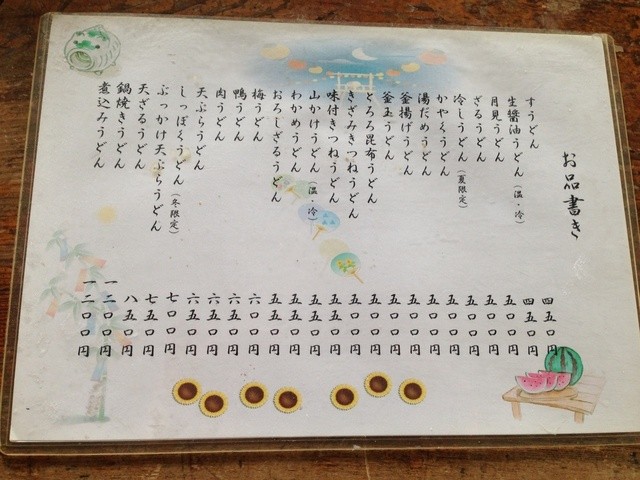 お品書き
すうどん 四五〇円
生醤油うどん（温・冷） 四五〇円
月見うどん 五〇〇円
ざるうどん 五〇〇円
冷しうどん（夏限定） 五〇〇円
かやくうどん 五〇〇円
湯だめうどん 五〇〇円
釜揚げうどん 五〇〇円
釜玉うどん 五〇〇円
とろろ昆布うどん 五〇〇円
きざみきつねうどん 五〇〇円
味付きつねうどん 五五〇円
山かけうどん（温・冷） 五五〇円
わかめうどん 五五〇円
おろしざるうどん 五五〇円
梅うどん 六〇〇円
鴨うどん 六五〇円
肉うどん 六五〇円
天ぷらうどん 六五〇円
しっぽくうどん（冬限定） 七〇〇円
ぶっかけ天ぷらうどん 七五〇円
天ざるうどん 八五〇円
鍋焼きうどん 一二〇〇円
煮込みうどん 一二〇〇円